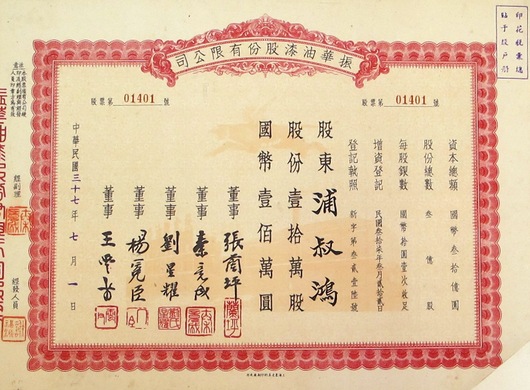 振華油漆股份有限公司
股票第 01401 號
股票第 01401 號
資本總額 國幣叁拾億圓
股份總數 叁億股
每股銀數 國幣拾圓壹次收足
增資登記 民國叁拾柒年叁月貳拾貳日
登記執照 新字第叁貳壹陸號
股東 浦叔鴻
股份壹拾萬股
國幣壹佰萬圓
董事
董事 秦
董事 劉星耀
董事 楊寬臣
董事 王
中華民國三十七年七月一日
印花稅票總
貼于投戶冊
經副理
經發人員